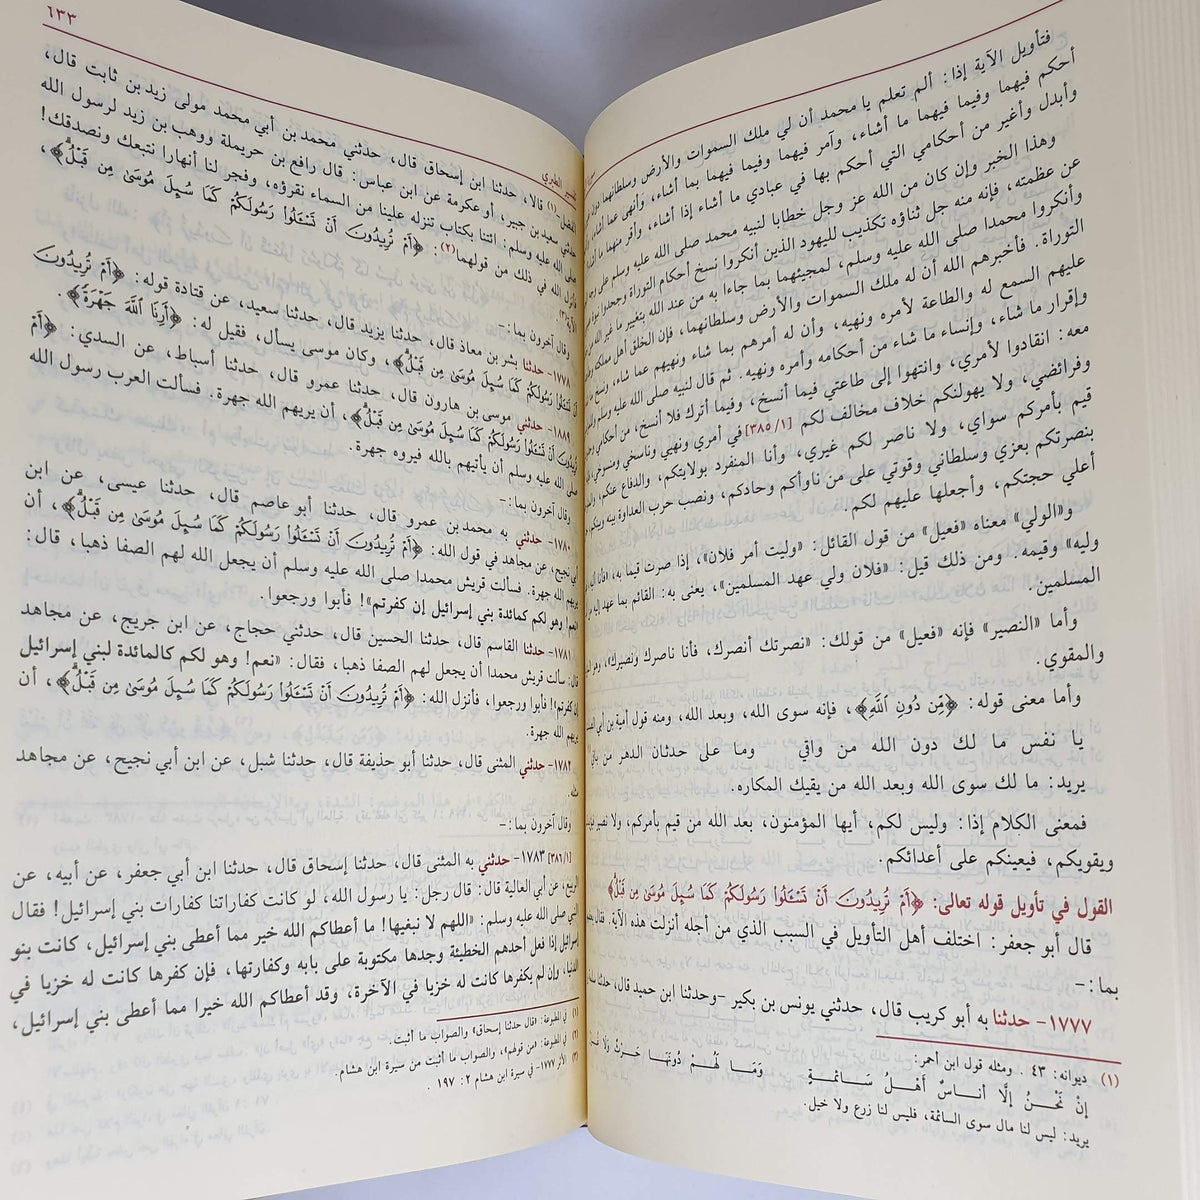 فتأويل الآية إذا: ألم تعلم يا محمد أن لي ملك السموات والأرض وسلطانهما دون
أحكم فيهما وفيما فيهما ما أشاء، وآمر فيهما وفيما فيهما بما أشاء، وأنهى عما أشاء،
وأبدل وأغير من أحكامي التي أحكم بها في عبادي ما أشاء إذا أشاء، وأقر منهما ما
وهذا الخبر وإن كان من الله عز وجل خطابا لنبيه محمد صلى الله عليه وسلم على وجه
عن عظمته، فإنه منه جل ثناؤه تكذيب لليهود الذين أنكروا نسخ أحكام التوراة وجحدوا
وأنكروا محمدا صلى الله عليه وسلم، لمجيئهما بما جاءا به من عند الله بتغيير ما غير الله
التوراة. فأخبرهم الله أن له ملك السموات والأرض وسلطانهما، فإن الخلق أهل مملكته
عليهم السمع له والطاعة لأمره ونهيه، وأن له أمرهم بما شاء ونهيهم عما شاء، ونسخ ما
وإقرار ما شاء، وإنساء ما شاء من أحكامه وأمره ونهيه. ثم قال لنبيه صلى الله عليه وسلم
معه: انقادوا لأمري، وانتهوا إلى طاعتي فيما أنسخ، وفيما أترك فلا أنسخ، من أحكامي
وفرائضي، ولا يهولنكم خلاف مخالف لكم [١/ ٣٨٥] في أمري ونهيي وناسخي ومنسوخي،
قيم بأمركم سواي، ولا ناصر لكم غيري، وأنا المنفرد بولايتكم، والدفاع عنكم،
بنصرتكم بعزي وسلطاني وقوتي على من ناوأكم وحادكم، ونصب حرب العداوة بينه وبينكم،
أعلي حجتكم، وأجعلها عليهم لكم.
و«الولي» معناه «فعيل» من قول القائل: «وليت أمر فلان»، إذا صرت قيما به،
وليه» وقيمه. ومن ذلك قيل: «فلان ولي عهد المسلمين»، يعنى به: القائم بما عهد إليه من
المسلمين.
وأما «النصير» فإنه «فعيل» من قولك: «نصرتك أنصرك، فأنا ناصرك ونصيرك»، وهو
والمقوي.
وأما معنى قوله: ﴿مِّن دُونِ ٱللَّهِ﴾، فإنه سوى الله، وبعد الله، ومنه قول أمية بن أبي
يا نفس ما لك دون الله من واقي وما على حدثان الدهر من
يريد: ما لك سوى الله وبعد الله من يقيك المكاره.
فمعنى الكلام إذا: وليس لكم، أيها المؤمنون، بعد الله من قيم بأمركم، ولا نصير
ويقويكم، فيعينكم على أعدائكم.
القول في تأويل قوله تعالى: ﴿أَمْ تُرِيدُونَ أَن تَسْـَٔلُوا۟ رَسُولَكُمْ كَمَا سُئِلَ مُوسَىٰ مِن قَبْلُ﴾
قال أبو جعفر: اختلف أهل التأويل في السبب الذي من أجله أنزلت هذه الآية. فقال
بما:–
١٧٧٧- حدثنا به أبو كريب قال، حدثني يونس بن بكير -وحدثنا ابن حميد قال، حدثنا
(١) ديوانه: ٤٣. ومثله قول ابن أحمر:
إن نحن إلا أناس أهل سائمة وما لهم دونها حرث ولا
يريد: ليس لنا مال سوى السائمة، فليس لنا زرع ولا خيل.
٦٣٣
تفسير الطبري
الفضل-(١) قالا، حدثنا ابن إسحاق قال، حدثني محمد بن أبي محمد مولى زيد بن ثابت قال،
حدثني سعيد بن جبير، أو عكرمة عن ابن عباس: قال رافع بن حريملة ووهب بن زيد لرسول الله
صلى الله عليه وسلم. ائتنا بكتاب تنزله علينا من السماء نقرؤه، وفجر لنا أنهارا نتبعك ونصدقك!
فأنزل الله في ذلك من قولهما(٢): ﴿أَمْ تُرِيدُونَ أَن تَسْـَٔلُوا۟ رَسُولَكُمْ كَمَا سُئِلَ مُوسَىٰ مِن قَبْلُ﴾،
الآية(٣).
وقال آخرون بما:–
١٧٧٨- حدثنا بشر بن معاذ قال، حدثنا يزيد قال، حدثنا سعيد، عن قتادة قوله: ﴿أَمْ تُرِيدُونَ
أَن تَسْـَٔلُوا۟ رَسُولَكُمْ كَمَا سُئِلَ مُوسَىٰ مِن قَبْلُ﴾، وكان موسى يسأل، فقيل له: ﴿أَرِنَا ٱللَّهَ جَهْرَةً﴾.
١٨٨٩- حدثني موسى بن هارون قال، حدثنا عمرو قال، حدثنا أسباط، عن السدي: ﴿أَمْ
تُرِيدُونَ أَن تَسْـَٔلُوا۟ رَسُولَكُمْ كَمَا سُئِلَ مُوسَىٰ مِن قَبْلُ﴾، أن يريهم الله جهرة. فسألت العرب رسول الله
صلى الله عليه وسلم أن يأتيهم بالله فيروه جهرة.
وقال آخرون بما:–
١٧٨٠- حدثني به محمد بن عمرو قال، حدثنا أبو عاصم قال، حدثنا عيسى، عن ابن
أبي نجيح، عن مجاهد في قول الله: ﴿أَمْ تُرِيدُونَ أَن تَسْـَٔلُوا۟ رَسُولَكُمْ كَمَا سُئِلَ مُوسَىٰ مِن قَبْلُ﴾، أن
يريهم الله جهرة. فسألت قريش محمدا صلى الله عليه وسلم أن يجعل الله لهم الصفا ذهبا، قال:
«نعم! وهو لكم كمائدة بني إسرائيل إن كفرتم»! فأبوا ورجعوا.
١٧٨١- حدثنا القاسم قال، حدثنا الحسين قال، حدثني حجاج، عن ابن جريج، عن مجاهد
قال: سألت قريش محمدا أن يجعل لهم الصفا ذهبا، فقال: «نعم! وهو لكم كالمائدة لبني إسرائيل
إن كفرتم»! فأبوا ورجعوا، فأنزل الله: ﴿أَمْ تُرِيدُونَ أَن تَسْـَٔلُوا۟ رَسُولَكُمْ كَمَا سُئِلَ مُوسَىٰ مِن قَبْلُ﴾، أن
يريهم الله جهرة.
١٧٨٢- حدثني المثنى قال، حدثنا أبو حذيفة قال، حدثنا شبل، عن ابن أبي نجيح، عن مجاهد
مثله.
وقال آخرون بما:–
[٣٨٦/١] ١٧٨٣- حدثني به المثنى قال، حدثنا إسحاق قال، حدثنا ابن أبي جعفر، عن أبيه، عن
الربيع، عن أبي العالية قال: قال رجل: يا رسول الله، لو كانت كفاراتنا كفارات بني إسرائيل! فقال
النبي صلى الله عليه وسلم: «اللهم لا نبغيها! ما أعطاكم الله خير مما أعطى بني إسرائيل، كانت بنو
إسرائيل إذا فعل أحدهم الخطيئة وجدها مكتوبة على بابه وكفارتها، فإن كفرها كانت له خزيا في
الدنيا، وإن لم يكفرها كانت له خزيا في الآخرة، وقد أعطاكم الله خيرا مما أعطى بني إسرائيل،
(١) في المطبوعة: «قال حدثنا إسحاق» والصواب ما أثبت.
(٢) في المطبوعة: «من قولهم»، والصواب ما أثبت من سيرة ابن هشام.
(٣) الأثر ١٧٧٧- في سيرة ابن هشام ٢: ١٩٧.